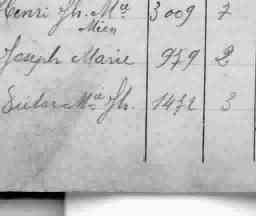 Henri Jh. Mie 3009 7
Mien
Joseph Marie 979 2
Victor Mie Jh. 1472 3